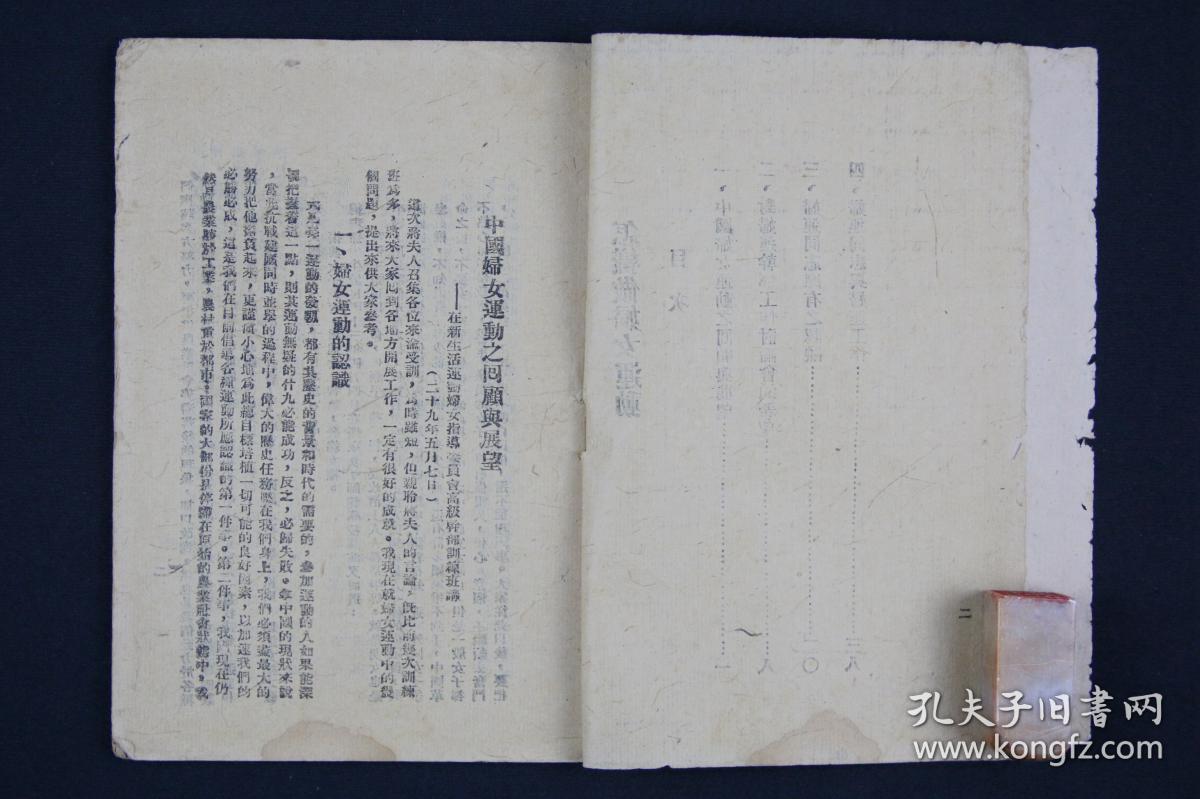 二
中國婦女運動之囘顧與展望
——在新生活運動婦女指導委員會高級幹部訓練班講
（二十九年五月七日）
這次蔣夫人召集各位來渝受訓，爲時雖短，但親聆蔣夫人的言論，旣比前幾次訓練
班爲多，將來大家囘到各地方開展工作，一定有很好的成績。我現在就婦女運動中的幾
個問題，提出來供大家參考。
一、婦女運動的認識
大凡每一運動的發動，都有其歷史的背景和時代的需要的，參加運動的人如果能深
切把握着這一點，則其運動無疑的什九必能成功，反之，必歸失敗。拿中國的現狀來說
，當此抗戰建國同時並舉的過程中，偉大的歷史任務壓在我們身上，我們必須盡最大的
努力把他擔負起來，更謹慎小心地爲此總目標培植一切可能的良好因素，以加速我們的
必勝必成，這是我們在目前倡導各種運動所應認識的第一件事。第二件事，我國現在仍
然是農業勝於工業，農村重於都市。國家的大部份是停滯在原始的農業社會狀態中，我
孔夫子旧书网
www.kongfz.com